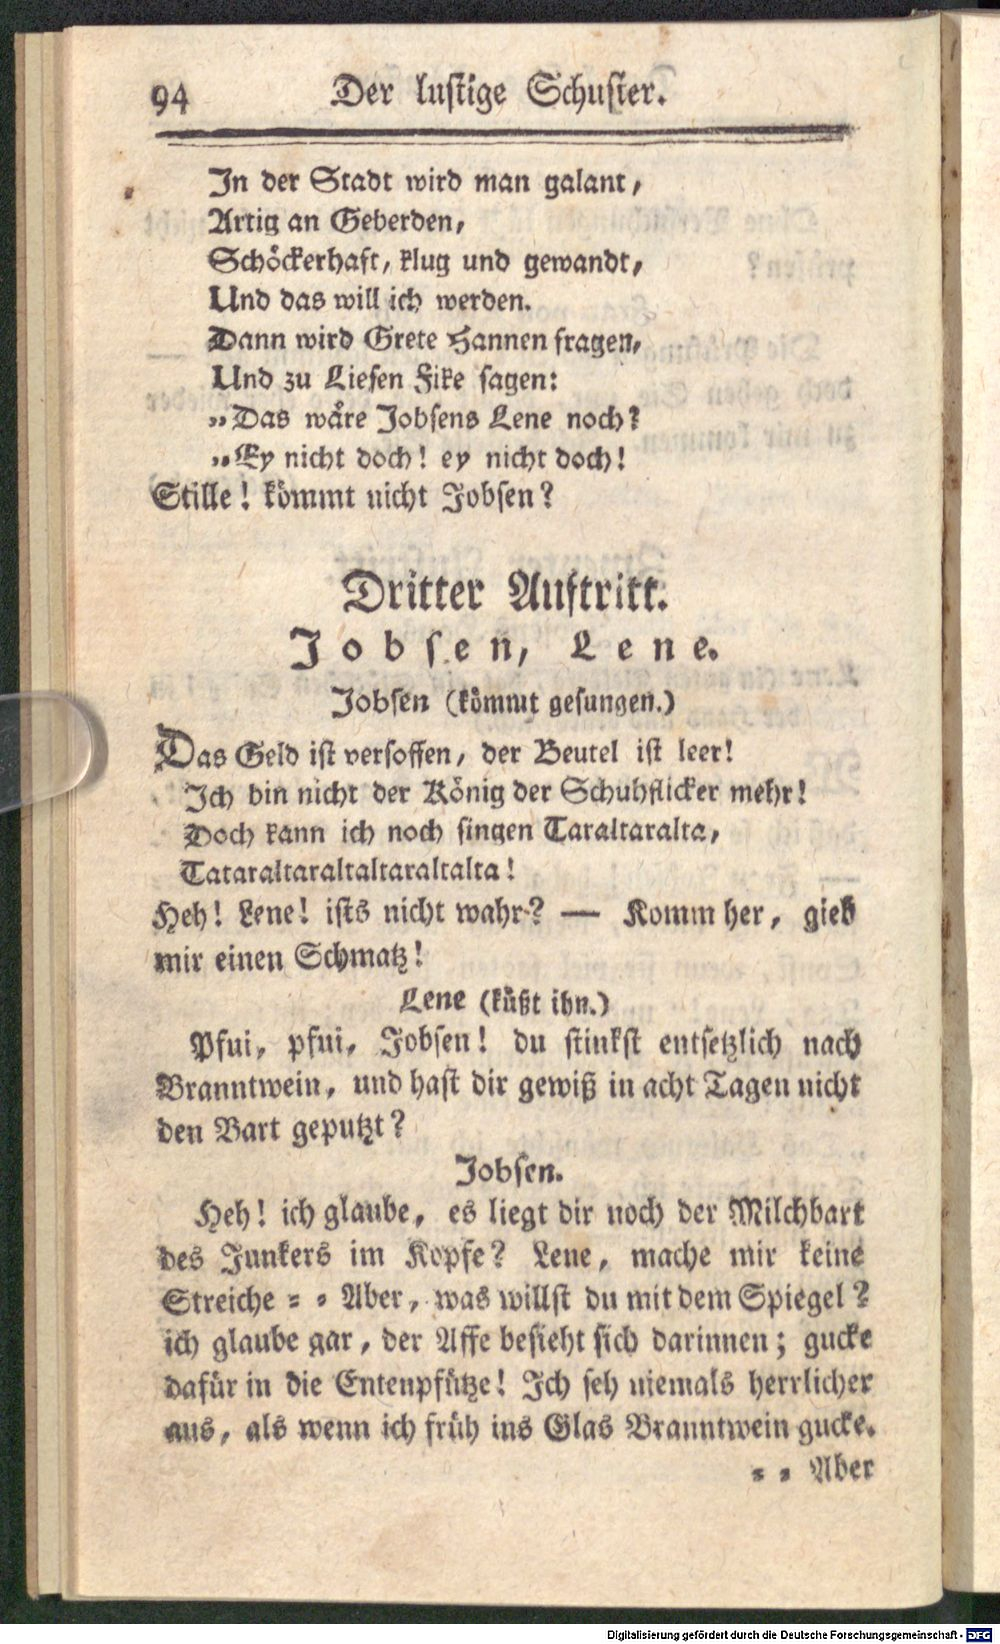 94 Der lustige Schuster.
In der Stadt wird man galant,
Artig an Geberden,
Schöckerhaft, klug und gewandt,
Und das will ich werden.
Dann wird Grete Hannen fragen,
Und zu Liesen Fike sagen:
„Das wäre Jobsens Lene noch?
„Ey nicht doch! ey nicht doch!
Stille! kömmt nicht Jobsen?
Dritter Auftritt.
Jobsen, Lene.
Jobsen (kömmt gesungen.)
Das Geld ist versoffen, der Beutel ist leer!
Ich bin nicht der König der Schuhflicker mehr!
Doch kann ich noch singen Taraltaralta,
Tataraltaraltaltaraltalta!
Heh! Lene! ists nicht wahr? — Komm her, gieb
mir einen Schmatz!
Lene (küßt ihn.)
Pfui, pfui, Jobsen! du stinkst entsetzlich nach
Branntwein, und hast dir gewiß in acht Tagen nicht
den Bart geputzt?
Jobsen.
Heh! ich glaube, es liegt dir noch der Milchbart
des Junkers im Kopfe? Lene, mache mir keine
Streiche = = Aber, was willst du mit dem Spiegel?
ich glaube gar, der Affe besieht sich darinnen; gucke
dafür in die Entenpfütze! Ich seh niemals herrlicher
aus, als wenn ich früh ins Glas Branntwein gucke.
= = Aber
Digitalisierung gefördert durch die Deutsche Forschungsgemeinschaft - DFG